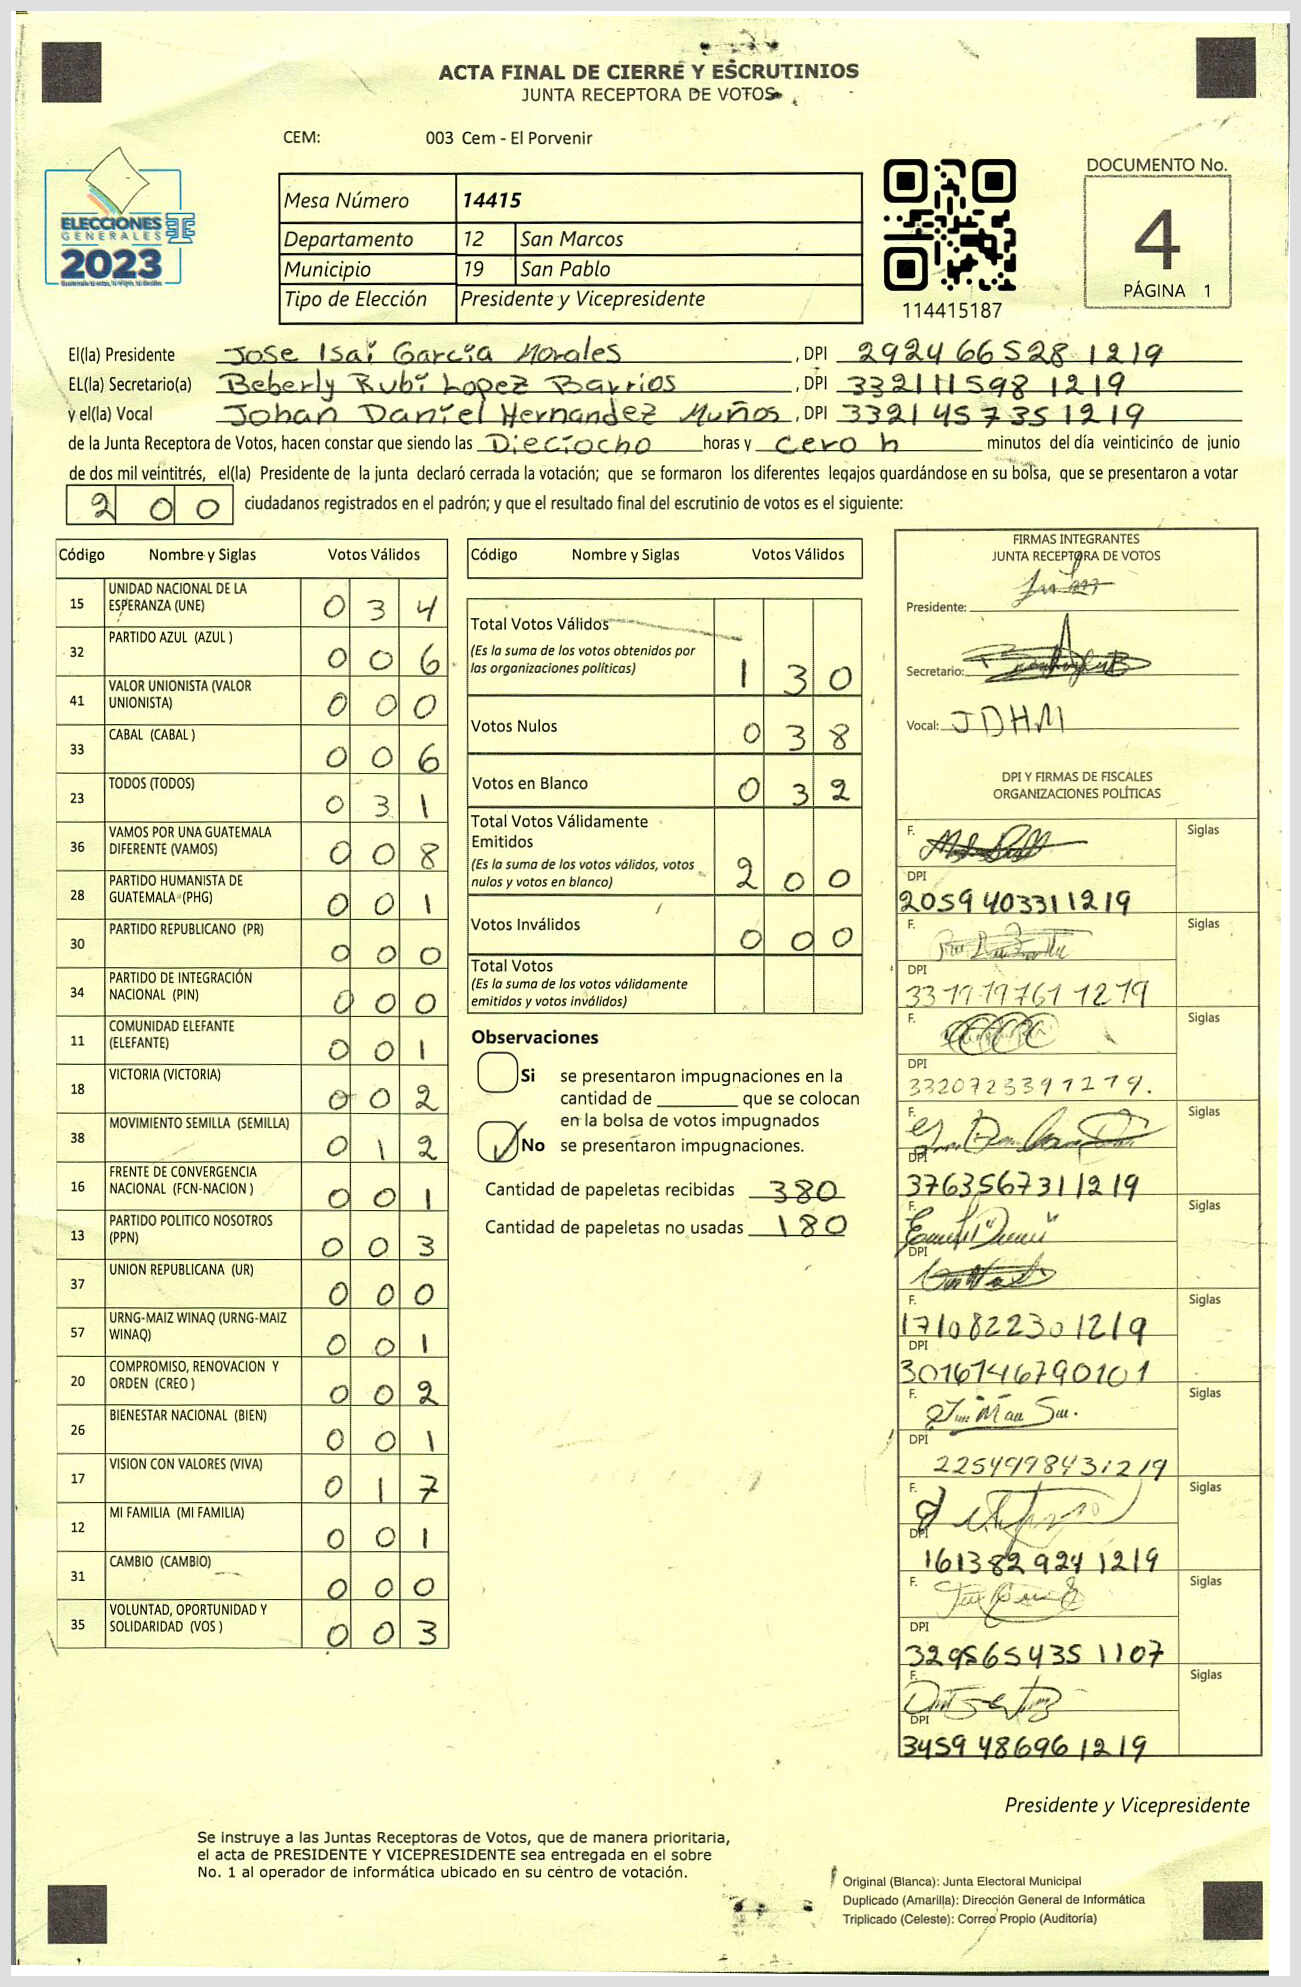 ACTA FINAL DE CIERRE Y ESCRUTINIOS
JUNTA RECEPTORA DE VOTOS
CEM: 003 Cem - El Porvenir
ELECCIONES
GENERALES
2023
Mesa Número 14415
Departamento 12 San Marcos
Municipio 19 San Pablo
Tipo de Elección Presidente y Vicepresidente
114415187
DOCUMENTO No.
4
PÁGINA 1
El(la) Presidente Jose Isaí García Morales, DPI 2924 66528 1219
EL(la) Secretario(a) Beberly Rubí Lopez Barrios, DPI 332111598 1219
y el(la) Vocal Johan Daniel Hernandez Muños, DPI 3321457351219
de la Junta Receptora de Votos, hacen constar que siendo las Dieciocho horas y cero h minutos del día veinticinco de junio
de dos mil veintitrés, el(la) Presidente de la junta declaró cerrada la votación; que se formaron los diferentes legajos quardándose en su bolsa, que se presentaron a votar
200 ciudadanos registrados en el padrón; y que el resultado final del escrutinio de votos es el siguiente:
Código Nombre y Siglas Votos Válidos
15 UNIDAD NACIONAL DE LA
ESPERANZA (UNE) 0 3 4
32 PARTIDO AZUL (AZUL ) 0 0 6
41 VALOR UNIONISTA (VALOR
UNIONISTA) 0 0 0
33 CABAL (CABAL ) 0 0 6
23 TODOS (TODOS) 0 3 1
36 VAMOS POR UNA GUATEMALA
DIFERENTE (VAMOS) 0 0 8
28 PARTIDO HUMANISTA DE
GUATEMALA (PHG) 0 0 1
30 PARTIDO REPUBLICANO (PR) 0 0 0
34 PARTIDO DE INTEGRACIÓN
NACIONAL (PIN) 0 0 0
11 COMUNIDAD ELEFANTE
(ELEFANTE) 0 0 1
18 VICTORIA (VICTORIA) 0 0 2
38 MOVIMIENTO SEMILLA (SEMILLA) 0 1 2
16 FRENTE DE CONVERGENCIA
NACIONAL (FCN-NACION ) 0 0 1
13 PARTIDO POLITICO NOSOTROS
(PPN) 0 0 3
37 UNION REPUBLICANA (UR) 0 0 0
57 URNG-MAIZ WINAQ (URNG-MAIZ
WINAQ) 0 0 1
20 COMPROMISO, RENOVACION Y
ORDEN (CREO ) 0 0 2
26 BIENESTAR NACIONAL (BIEN) 0 0 1
17 VISION CON VALORES (VIVA) 0 1 7
12 MI FAMILIA (MI FAMILIA) 0 0 1
31 CAMBIO (CAMBIO) 0 0 0
35 VOLUNTAD, OPORTUNIDAD Y
SOLIDARIDAD (VOS ) 0 0 3
Código Nombre y Siglas Votos Válidos
Total Votos Válidos
(Es la suma de los votos obtenidos por
las organizaciones políticas) 1 3 0
Votos Nulos 0 3 8
Votos en Blanco 0 3 2
Total Votos Válidamente
Emitidos
(Es la suma de los votos válidos, votos
nulos y votos en blanco) 2 0 0
Votos Inválidos 0 0 0
Total Votos
(Es la suma de los votos válidamente
emitidos y votos inválidos)
Observaciones
Si se presentaron impugnaciones en la
cantidad de ________ que se colocan
en la bolsa de votos impugnados
No se presentaron impugnaciones.
Cantidad de papeletas recibidas 380
Cantidad de papeletas no usadas 180
FIRMAS INTEGRANTES
JUNTA RECEPTORA DE VOTOS
Presidente:
Secretario:
Vocal: JDHM
DPI Y FIRMAS DE FISCALES
ORGANIZACIONES POLÍTICAS
F. Siglas
DPI
2059 40331 1219
F. Siglas
DPI
F. Siglas
DPI
3320723391219.
F. Siglas
DPI
3763567311219
F. Siglas
DPI
F. Siglas
1710822301219
DPI
3016746790101
F. Siglas
DPI
2254998431219
F. Siglas
DPI
1613829241219
F. Siglas
DPI
3295654351107
F. Siglas
DPI
3459486961219
Presidente y Vicepresidente
Se instruye a las Juntas Receptoras de Votos, que de manera prioritaria,
el acta de PRESIDENTE Y VICEPRESIDENTE sea entregada en el sobre
No. 1 al operador de informática ubicado en su centro de votación.
Original (Blanca): Junta Electoral Municipal
Duplicado (Amarilla): Dirección General de Informática
Triplicado (Celeste): Correo Propio (Auditoría)